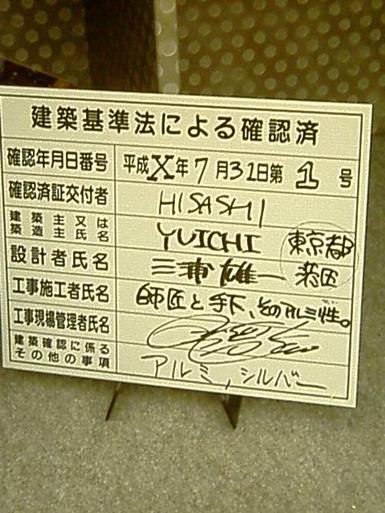 建築基準法による確認済
確認年月日番号 平成X年7月31日第1号
確認済証交付者 HISASHI
建築主又は築造主氏名 YUICHI 東京都
設計者氏名 三浦雄一
工事施工者氏名 師匠と手下、
工事現場管理者氏名
建築確認に係るその他の事項 アルミ, シルバー